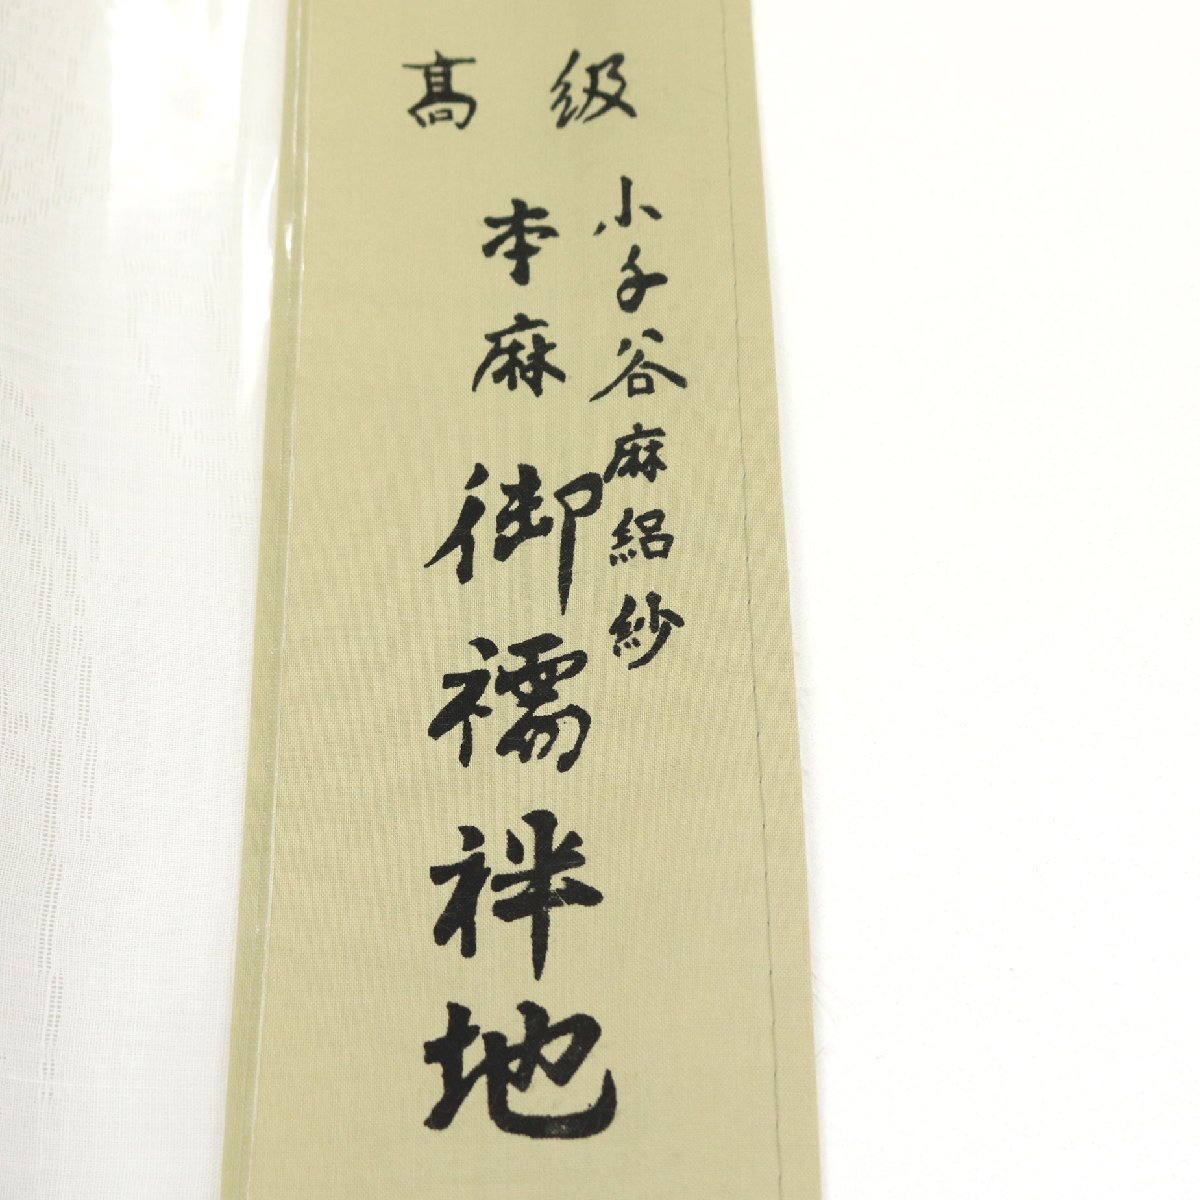 髙級
小千谷麻絽紗
本麻御襦袢地